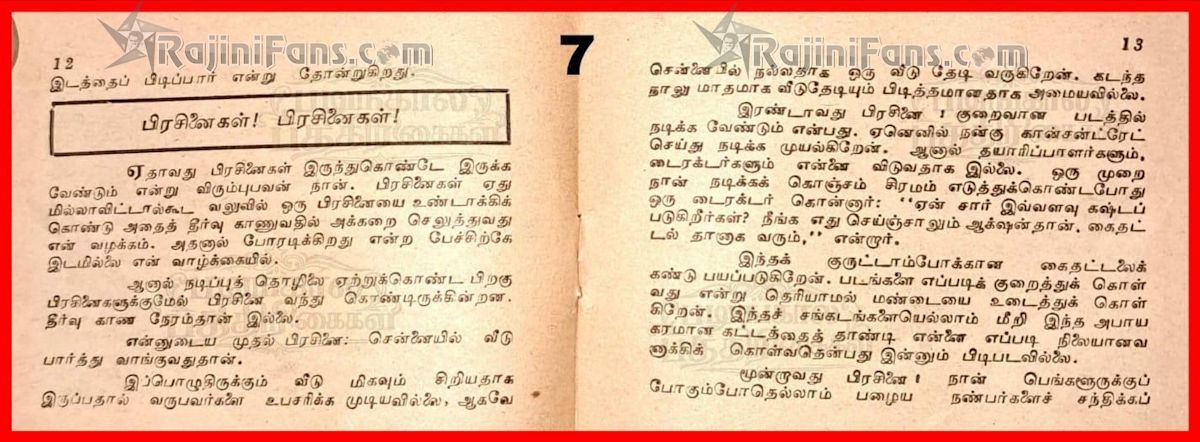 RajiniFans.com
12
இடத்தைப் பிடிப்பார் என்று தோன்றுகிறது.
பிரசினைகள்! பிரசினைகள்!
ஏதாவது பிரசினைகள் இருந்துகொண்டே இருக்க
வேண்டும் என்று விரும்புபவன் நான். பிரசினைகள் ஏது
மில்லாவிட்டால்கூட வலுவில் ஒரு பிரசினையை உண்டாக்கிக்
கொண்டு அதைத் தீர்வு காணுவதில் அக்கறை செலுத்துவது
என் வழக்கம். அதனால் போரடிக்கிறது என்ற பேச்சிற்கே
இடமில்லை என் வாழ்க்கையில்.
ஆனால் நடிப்புத் தொழிலை ஏற்றுக்கொண்ட பிறகு
பிரசினைகளுக்குமேல் பிரசினை வந்து கொண்டிருக்கின்றன.
தீர்வு காண நேரம்தான் இல்லை.
என்னுடைய முதல் பிரசினை: சென்னையில் வீடு
பார்த்து வாங்குவதுதான்.
இப்பொழுதிருக்கும் வீடு மிகவும் சிறியதாக
இருப்பதால் வருபவர்களை உபசரிக்க முடியவில்லை, ஆகவே
7
RajiniFans.com
13
சென்னையில் நல்லதாக ஒரு வீடு தேடி வருகிறேன். கடந்த
நாலு மாதமாக வீடுதேடியும் பிடித்தமானதாக அமையவில்லை.
இரண்டாவது பிரசினை! குறைவான படத்தில்
நடிக்க வேண்டும் என்பது. ஏனெனில் நன்கு கான்சன்ட்ரேட்
செய்து நடிக்க முயல்கிறேன். ஆனால் தயாரிப்பாளர்களும்,
டைரக்டர்களும் என்னை விடுவதாக இல்லை. ஒரு முறை
நான் நடிக்கக் கொஞ்சம் சிரமம் எடுத்துக்கொண்டபோது
ஒரு டைரக்டர் கொன்னார்: ''ஏன் சார் இவ்வளவு கஷ்டப்
படுகிறீர்கள்? நீங்க எது செய்ஞ்சாலும் ஆக்‌ஷன்தான். கைதட்
டல் தானாக வரும்,'' என்றார்.
இந்தக் குருட்டாம்போக்கான கைதட்டலைக்
கண்டு பயப்படுகிறேன். படங்களை எப்படிக் குறைத்துக் கொள்
வது என்று தெரியாமல் மண்டையை உடைத்துக் கொள்
கிறேன். இந்தச் சங்கடங்களையெல்லாம் மீறி இந்த அபாய
கரமான கட்டத்தைத் தாண்டி என்னை எப்படி நிலையானவ
னாக்கிக் கொள்வதென்பது இன்னும் பிடிபடவில்லை.
மூன்றாவது பிரசினை! நான் பெங்களூருக்குப்
போகும்போதெல்லாம் பழைய நண்பர்களைச் சந்திக்கப்